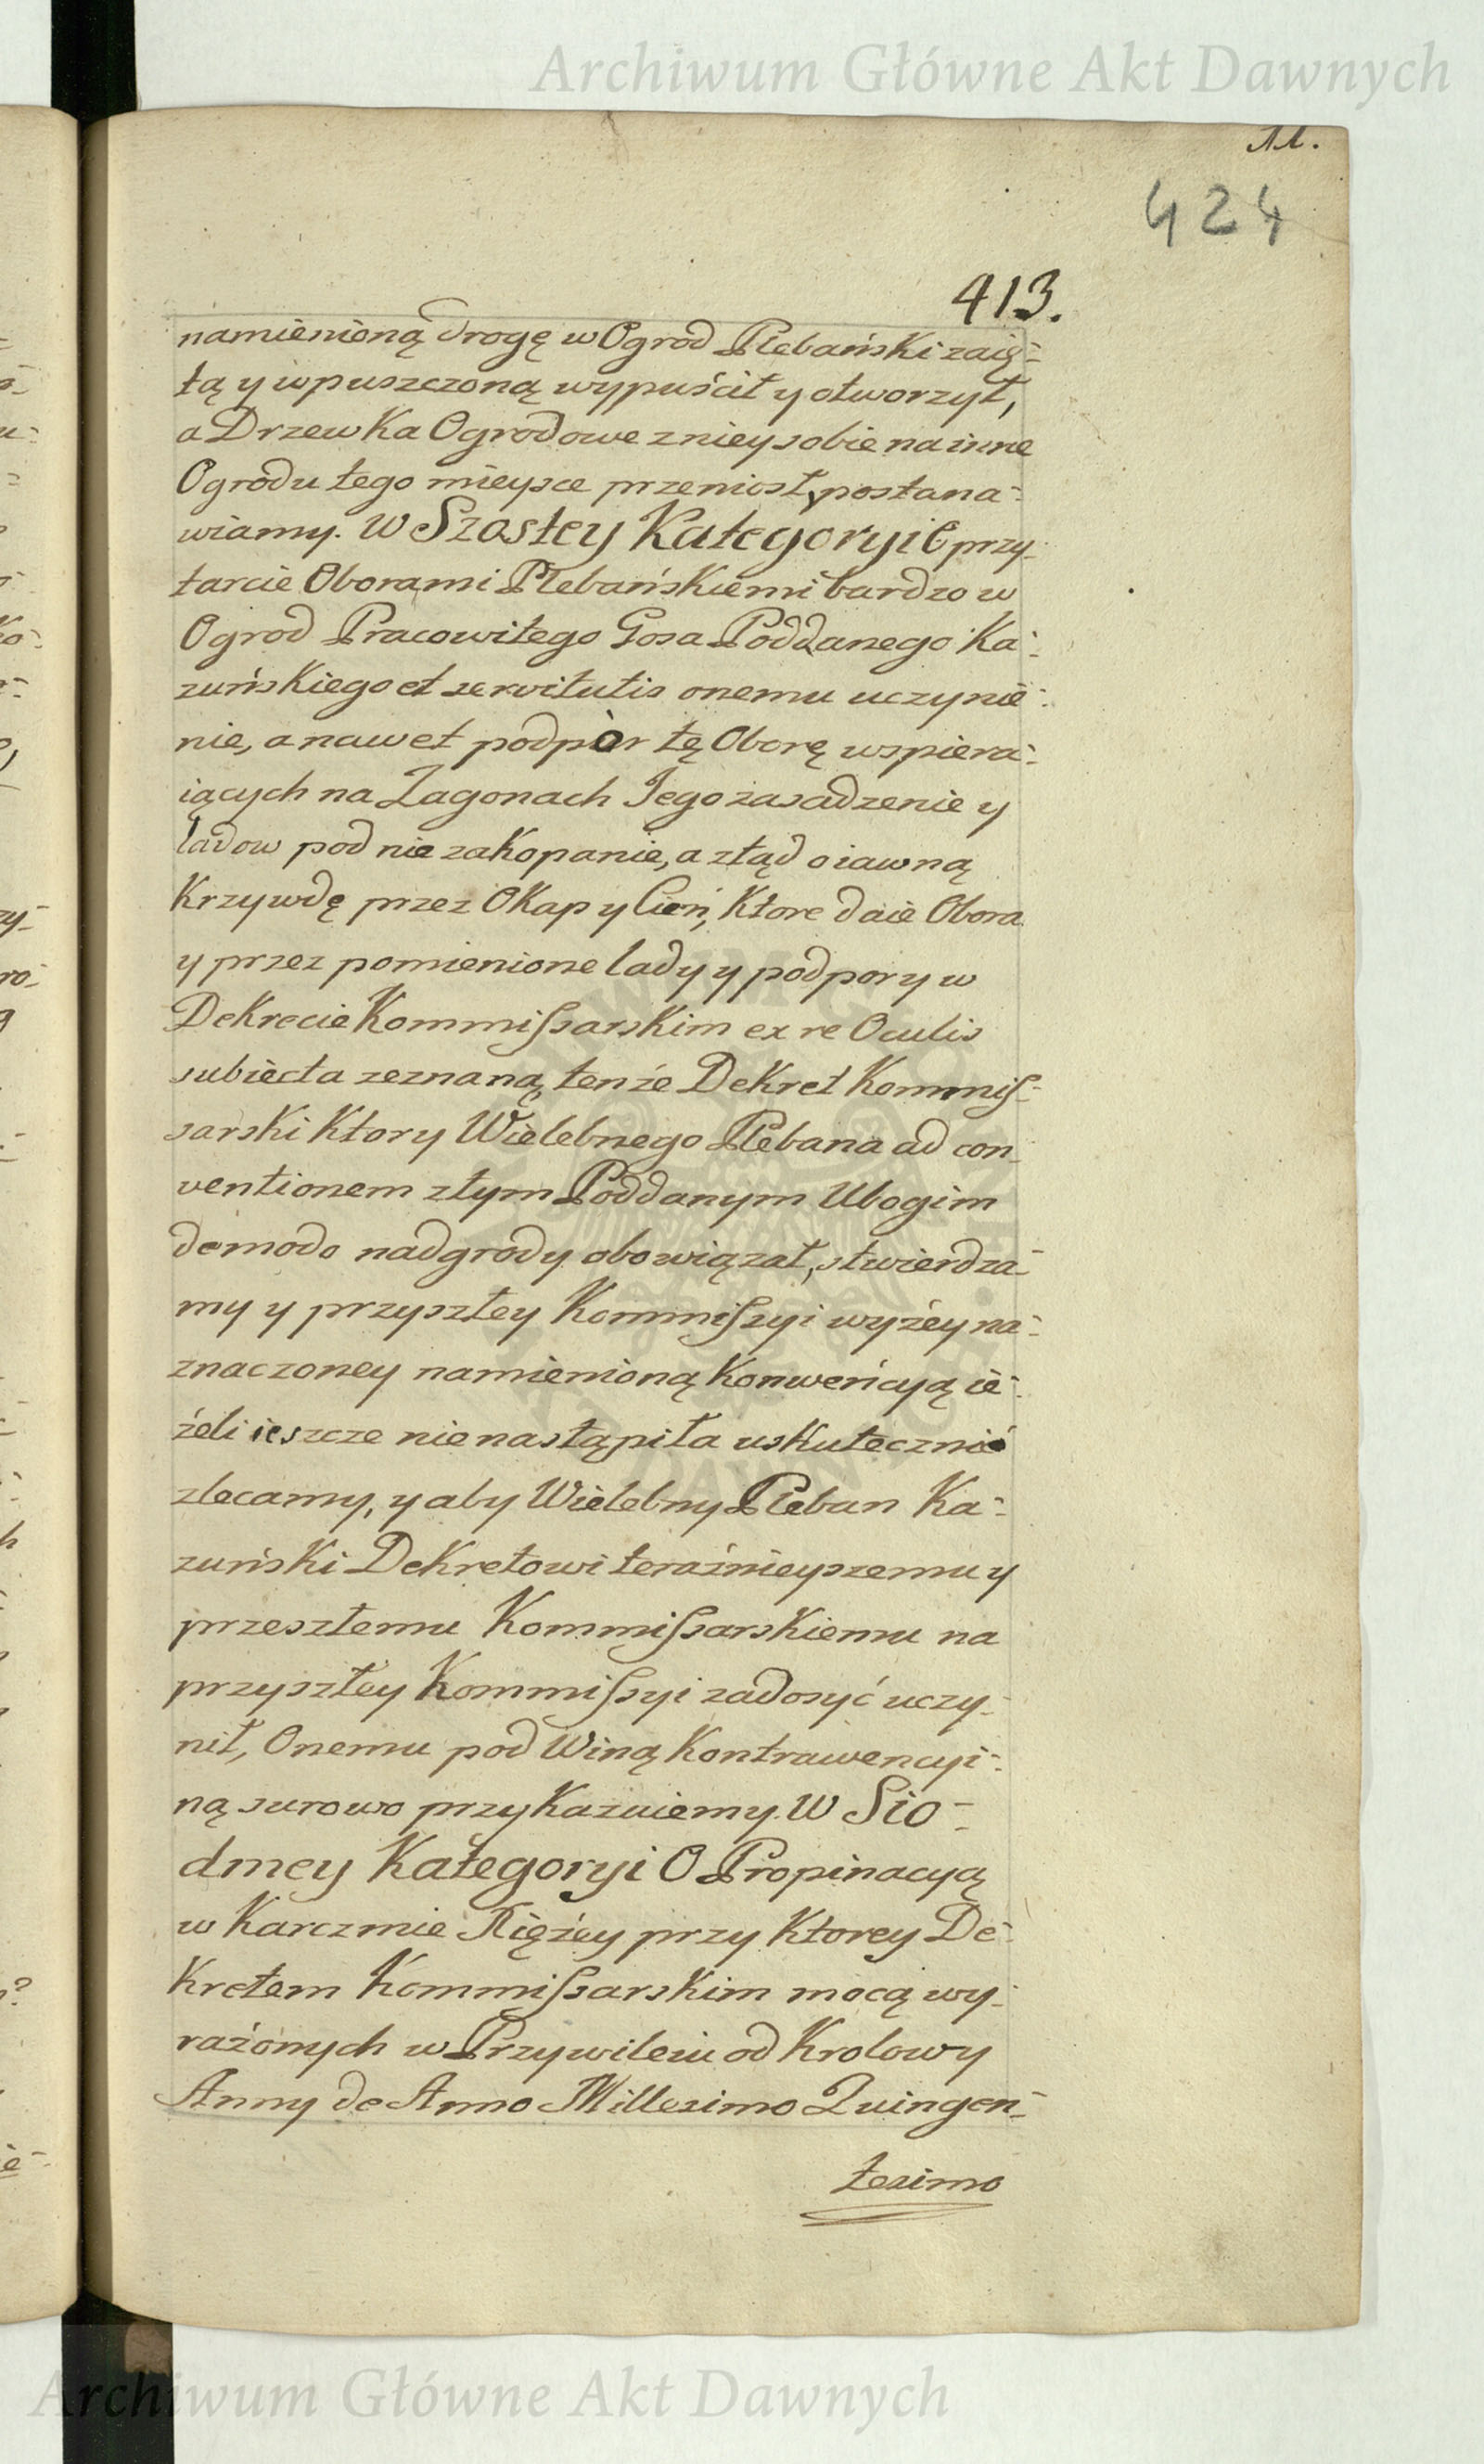 Archiwum Główne Akt Dawnych
424
413.
namienioną drogę w Ogrod Plebański zaię-
tą y wpuszczoną wypuścił y otworzył,
a Drzewka Ogrodowe z niey sobie na inne
Ogrodu tego mieysce przeniosł, postana-
wiamy. W Szostey Kategoryi O przy-
tarcie Oborami Plebańskiemi bardzo w
Ogrod Pracowitego Gosa Poddanego Ka-
zuńskiego et servitutis onemu uczynie-
nie, a nawet podpor tę Oborę wspiera-
iących na Zagonach Jego zasadzenie y
ladow pod nie zakopanie, a ztąd o iawną
Krzywdę przez Okap y Cień, Ktore daie Obora
y przez pomienione lady y podpory w
Dekrecie Kommissarskim ex re Oculis
subiecta zeznaną, tenże Dekret Kommis-
sarski Ktory Wielebnego Plebana ad con-
ventionem z tym Poddanym Ubogim
de modo nadgrody obowiązał, stwierdza-
my y przyszłey Kommissyi wyżey na-
znaczoney namienioną Konwencyą ie-
żeli ieszcze nie nastąpiła uskutecznić
zlecamy, y aby Wielebny Pleban Ka-
zuński Dekretowi teraźnieyszemu y
przeszłemu Kommissarskiemu na
przyszłey Kommissyi zadosyć uczy-
nił, Onemu pod Winą Kontrawencyi-
ną surowo przykazuiemy. W Sio-
dmey Kategoryi O Propinacyą
w Karczmie Xiężey przy Ktorey De-
Kretem Kommissarskim mocą wy-
rażonych w Przywileiu od Krolowy
Anny de Anno Millesimo Quingen-
tesimo
Archiwum Główne Akt Dawnych